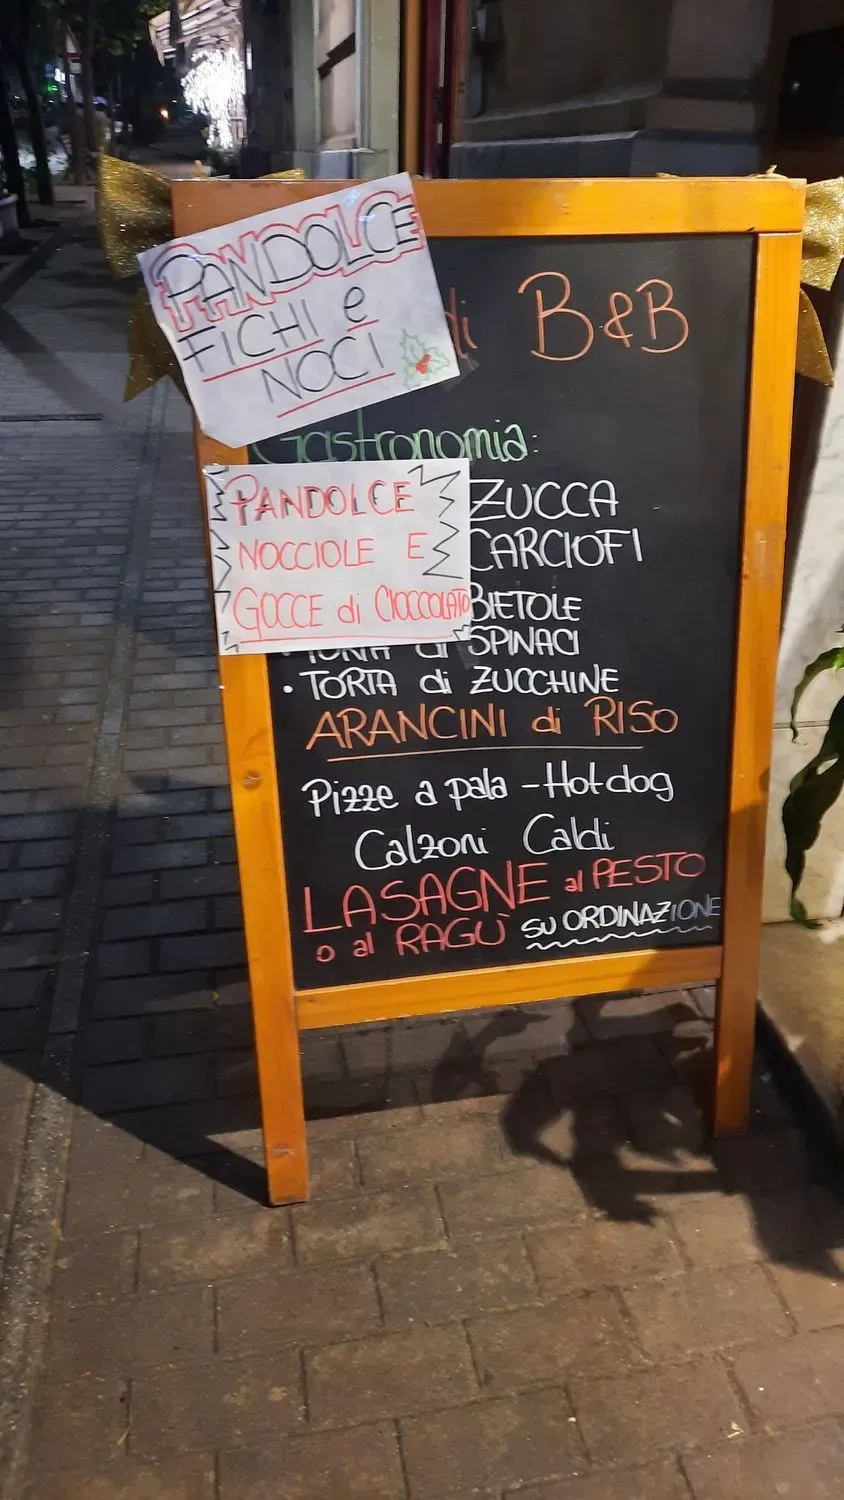 PANDOLCE
FICHI e
NOCI
di B&B
Gastronomia:
PANDOLCE
NOCCIOLE E
GOCCE di CIOCCOLATO
ZUCCA
CARCIOFI
BIETOLE
• TORTA di SPINACI
• TORTA di ZUCCHINE
ARANCINI di RISO
Pizze a pala - Hot dog
Calzoni Caldi
LASAGNE al PESTO
o al RAGÙ SU ORDINAZIONE